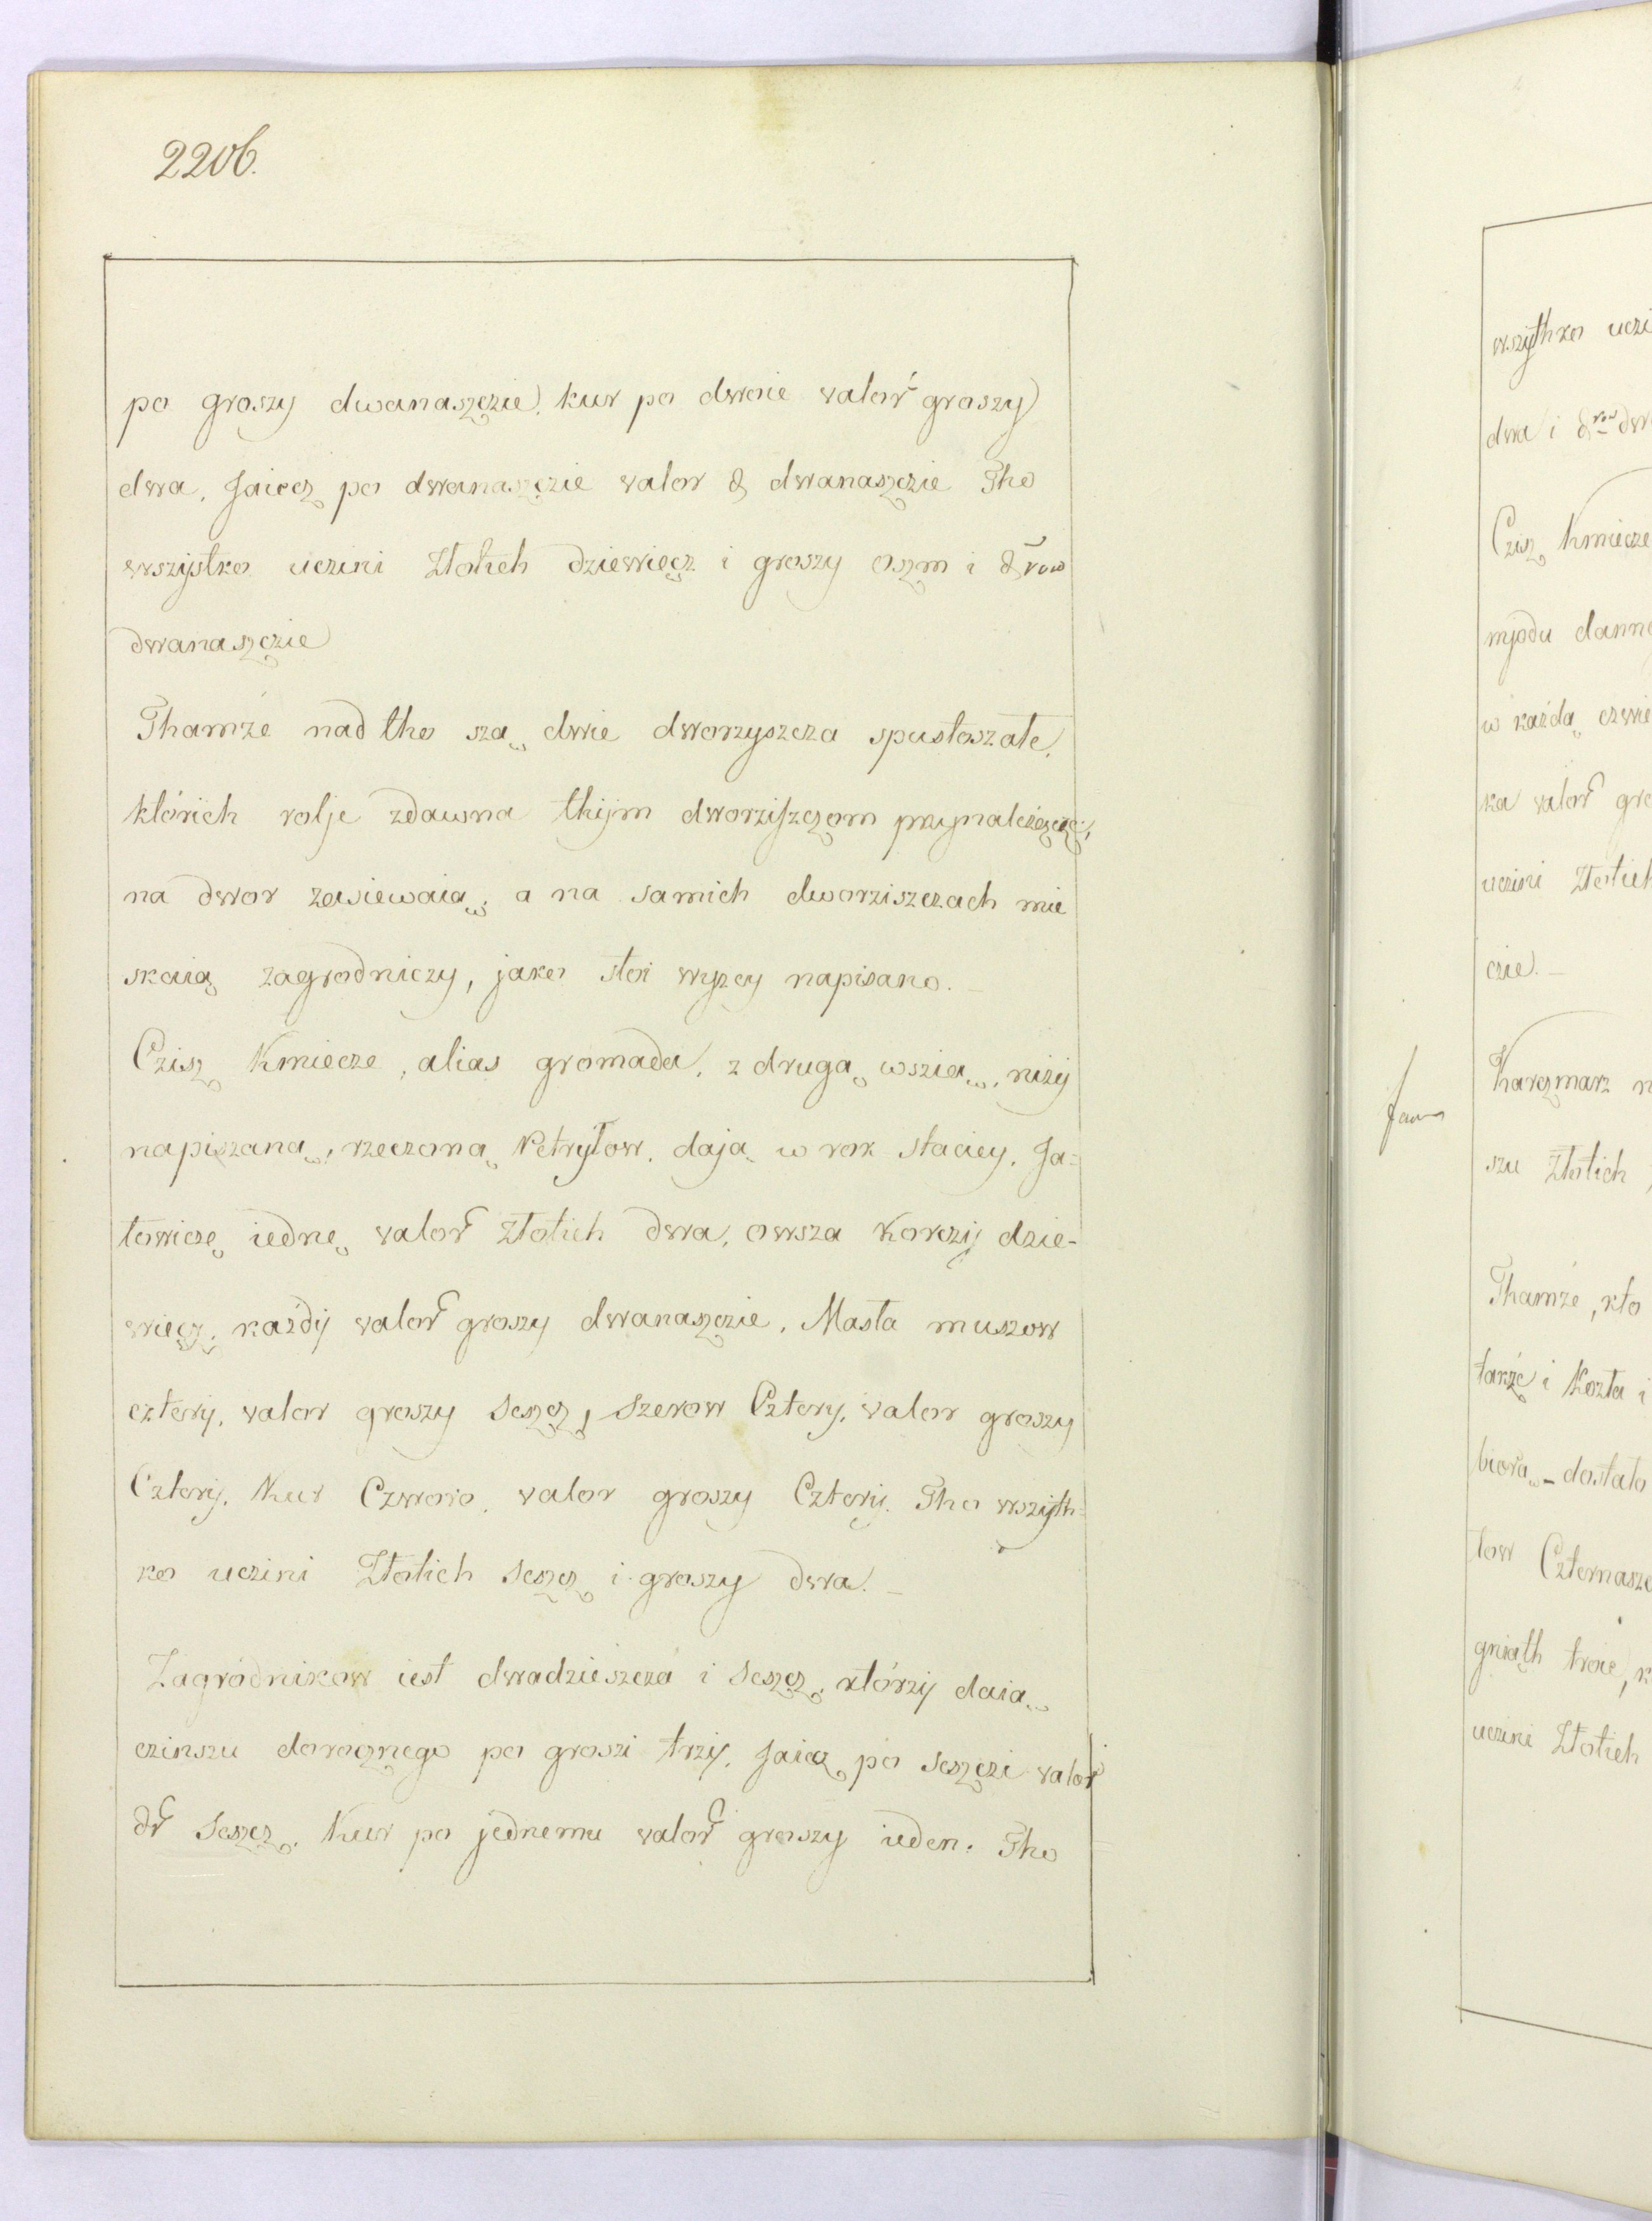 2206.
po groszy dwanaszczie, kur po dwoie valor groszy
dwa, Jaiecz po dwanaszczie valor d dwanaszczie Tho
wszystko uczini Złotich dziewięcz i groszy oszm i drow
dwanaszczie
Thamże nad tho szą dwie dworzyszcza spustoszałe,
których rolje zdawna thijm dworziszczom przynależęcze,
na dwor zasiewaią, a na samich dworziszczach mie
skaią zagrodniczy, jako stoi wyszey napisano. –
Czisz Kmiecze, alias gromada, z drugą wszią, niży
napiszaną, rzeczoną Petryłow, dają w rok staciey, Ja=
łowiczę iednę valor złotich dwa, owsza Korczij dzie-
więcz, każdij valor groszy dwanaszczie, Masła muszow
cztery, valor groszy seszcz, Szerow Cztery, valor groszy
Cztery, Kur Czworo, valor groszy Cztery. Tho wszijth=
ko uczini Złotich seszcz i groszy dwa. –
Zagródnikow iest dwadzieszcza i seszcz, którzij daią
czinszu dorocznego po groszi trzy, Jaiecz po seszczi valor
dr seszcz, Kur po jednemu valor groszy ieden. Tho
wszijthko uczi
dwa i drow dwa
Czisz Kmiecze
mjodu danne
w każdą czwie
ka valor gro
uczini Złotich
czie. –
Karczmarz n
szu Złotich
Thamże, kto
także i Kozła i
biorą – dostało
low Czternaszc
gniąth troie, k
uczini Złotich